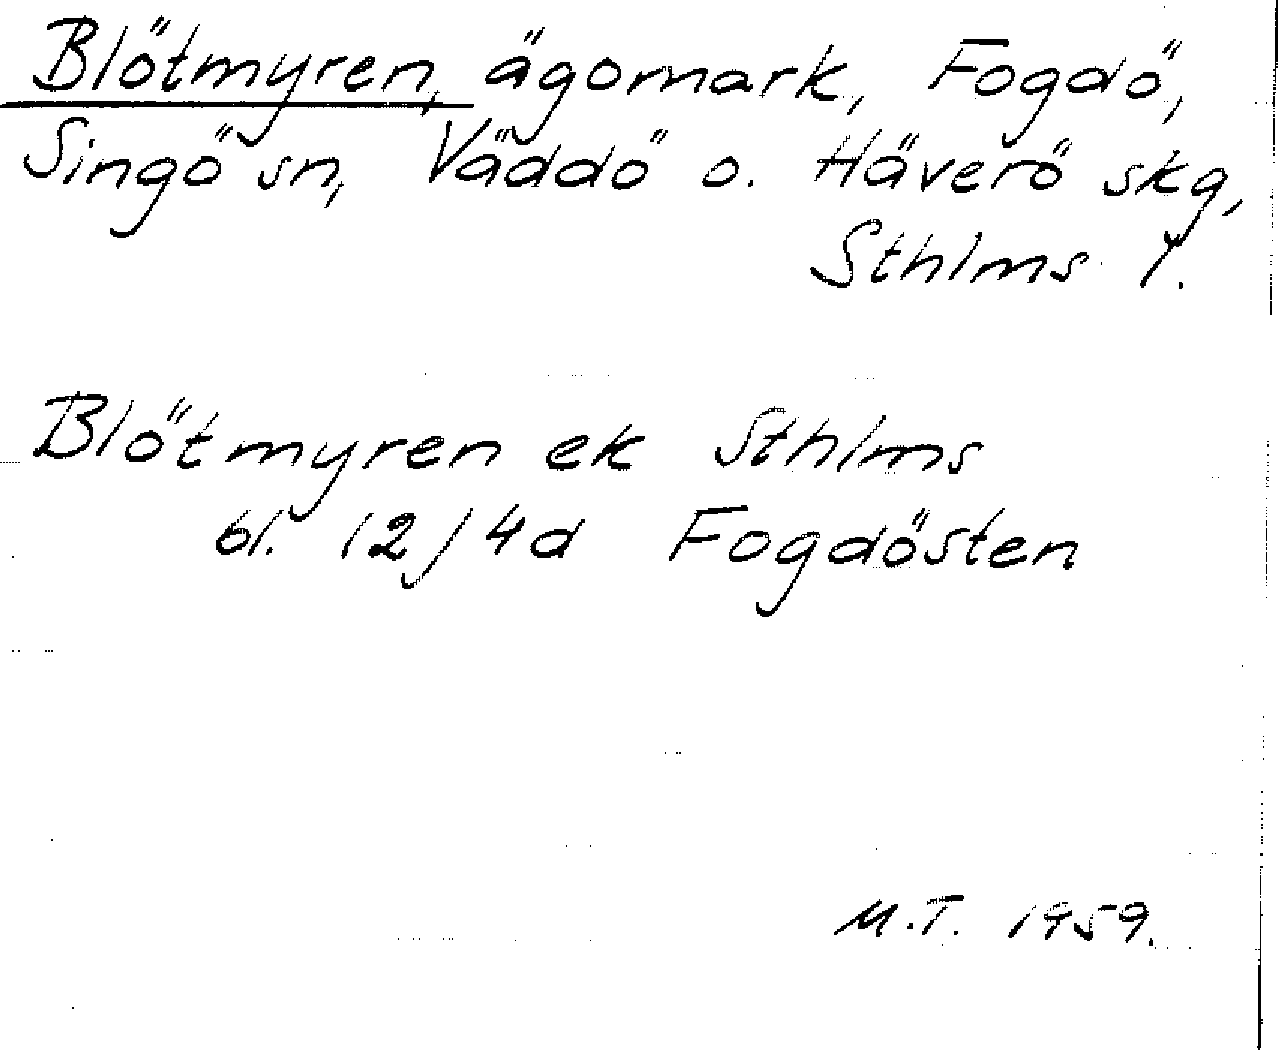 Blötmyren, ägomark, Fogdö,
Singö sn, Väddö o. Häverö skg,
Sthlms l.
Blötmyren ek Sthlms
bl. 12/4d Fogdösten
M.T. 1959.